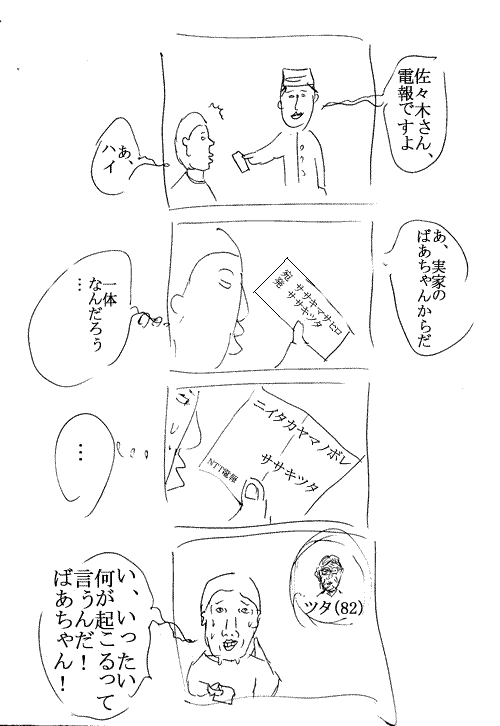 佐々木さん、
電報ですよ
あ、
ハイ
あ、実家の
ばあちゃんからだ
宛 ササキマサヒロ
発 ササキツタ
一体
なんだろう
…
ニイタカヤマノボレ
ササキツタ
NTT電報
…
ツタ(82)
い、いったい
何が起こるって
言うんだ！
ばあちゃん！